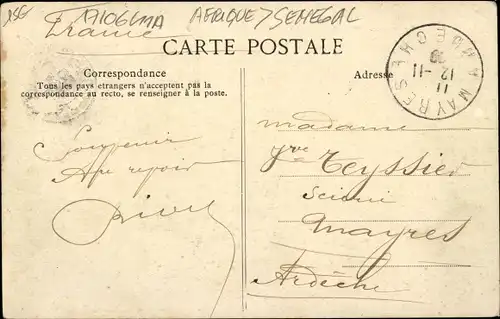 15€ A1061MA AFRIQUE > SENEGAL
France
CARTE POSTALE
Correspondance
Tous les pays etrangers n'acceptent pas la
correspondance au recto, se renseigner à la poste.
Adresse
MAYRES
11
12 - 11
Souvenir
Au revoir
madame
Vve Teyssier
Mayres
Ardèche